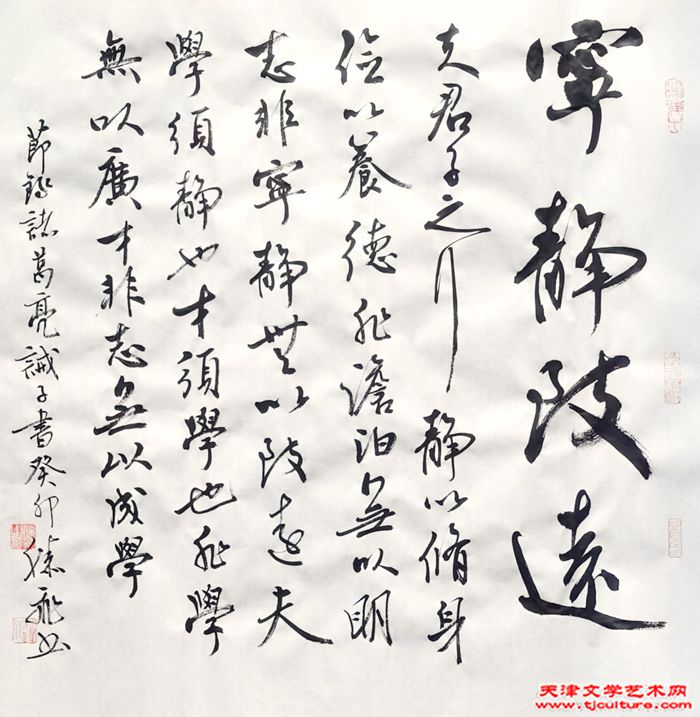 寧静致遠
夫君子之行静以脩身
儉以養德非澹泊無以明
志非寧静無以致遠夫
學須静也才須學也非學
無以廣才非志無以成學
節錄諸葛亮誡子書癸卯
天津文学艺术网
www.tjculture.com